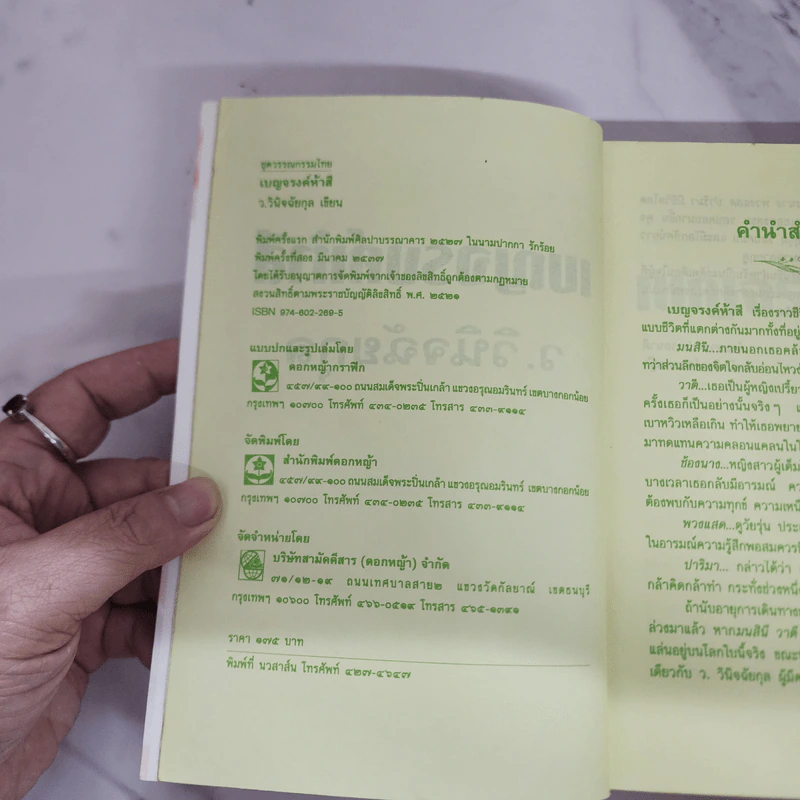 ชุดวรรณกรรมไทย
เบญจรงค์ห้าสี
ว.วินิจฉัยกุล เขียน
พิมพ์ครั้งแรก สำนักพิมพ์ศิลปาบรรณาคาร ๒๕๒๗ ในนามปากกา รักร้อย
พิมพ์ครั้งที่สอง มีนาคม ๒๕๓๗
โดยได้รับอนุญาตการจัดพิมพ์จากเจ้าของลิขสิทธิ์ถูกต้องตามกฎหมาย
สงวนสิทธิ์ตามพระราชบัญญัติลิขสิทธิ์ พ.ศ. ๒๕๒๑
ISBN 974-602-269-5
แบบปกและรูปเล่มโดย
ดอกหญ้ากราฟิก
๔๕๗/๙๙-๑๐๐ ถนนสมเด็จพระปิ่นเกล้า แขวงอรุณอมรินทร์ เขตบางกอกน้อย
กรุงเทพฯ ๑๐๗๐๐ โทรศัพท์ ๔๓๔-๐๒๓๕ โทรสาร ๔๓๓-๙๑๑๔
จัดพิมพ์โดย
สำนักพิมพ์ดอกหญ้า
๔๕๗/๙๙-๑๐๐ ถนนสมเด็จพระปิ่นเกล้า แขวงอรุณอมรินทร์ เขตบางกอกน้อย
กรุงเทพฯ ๑๐๗๐๐ โทรศัพท์ ๔๓๔-๐๒๓๕ โทรสาร ๔๓๓-๙๑๑๔
จัดจำหน่ายโดย
บริษัทสามัคคีสาร (ดอกหญ้า) จำกัด
๗๑/๑๒-๑๙ ถนนเทศบาลสาย๒ แขวงวัดกัลยาณ์ เขตธนบุรี
กรุงเทพฯ ๑๐๖๐๐ โทรศัพท์ ๔๖๖-๐๕๑๙ โทรสาร ๔๖๕-๑๓๙๑
ราคา ๑๗๕ บาท
พิมพ์ที่ นวสาส์น โทรศัพท์ ๔๒๗-๔๖๔๗
คำนำ
เบญจรงค์ห้าสี
แบบชีวิตที่แตกต่างกันมากทั้งที่อยู่
มนสินี...ภายนอกเธอ
ทว่าส่วนลึกของจิตใจกลับอ่อนไหว
วาตี...เธอเป็นผู้หญิง
ครั้งเธอก็เป็นอย่างนั้นจริงๆ
เบาหวิวเหลือเกิน ทำให้เธอ
มาทดแทนความคลอนแคลน
ช้องนาง...หญิงสาว
บางเวลาเธอกลับมีอารมณ์
ต้องพบกับความทุกข์
พวงแสด...ดูวัยรุ่น
ในอารมณ์ความรู้สึกพอสมควร
ปาริมา... กล่าวได้ว่า
กล้าคิดกล้าทำ กระทั่งช่วง
ถ้านับอายุการเดินทาง
ล่วงมาแล้ว หากมนสินี วาตี
แล่นอยู่บนโลกใบนี้จริง
เดียวกับ ว. วินิจฉัยกุล